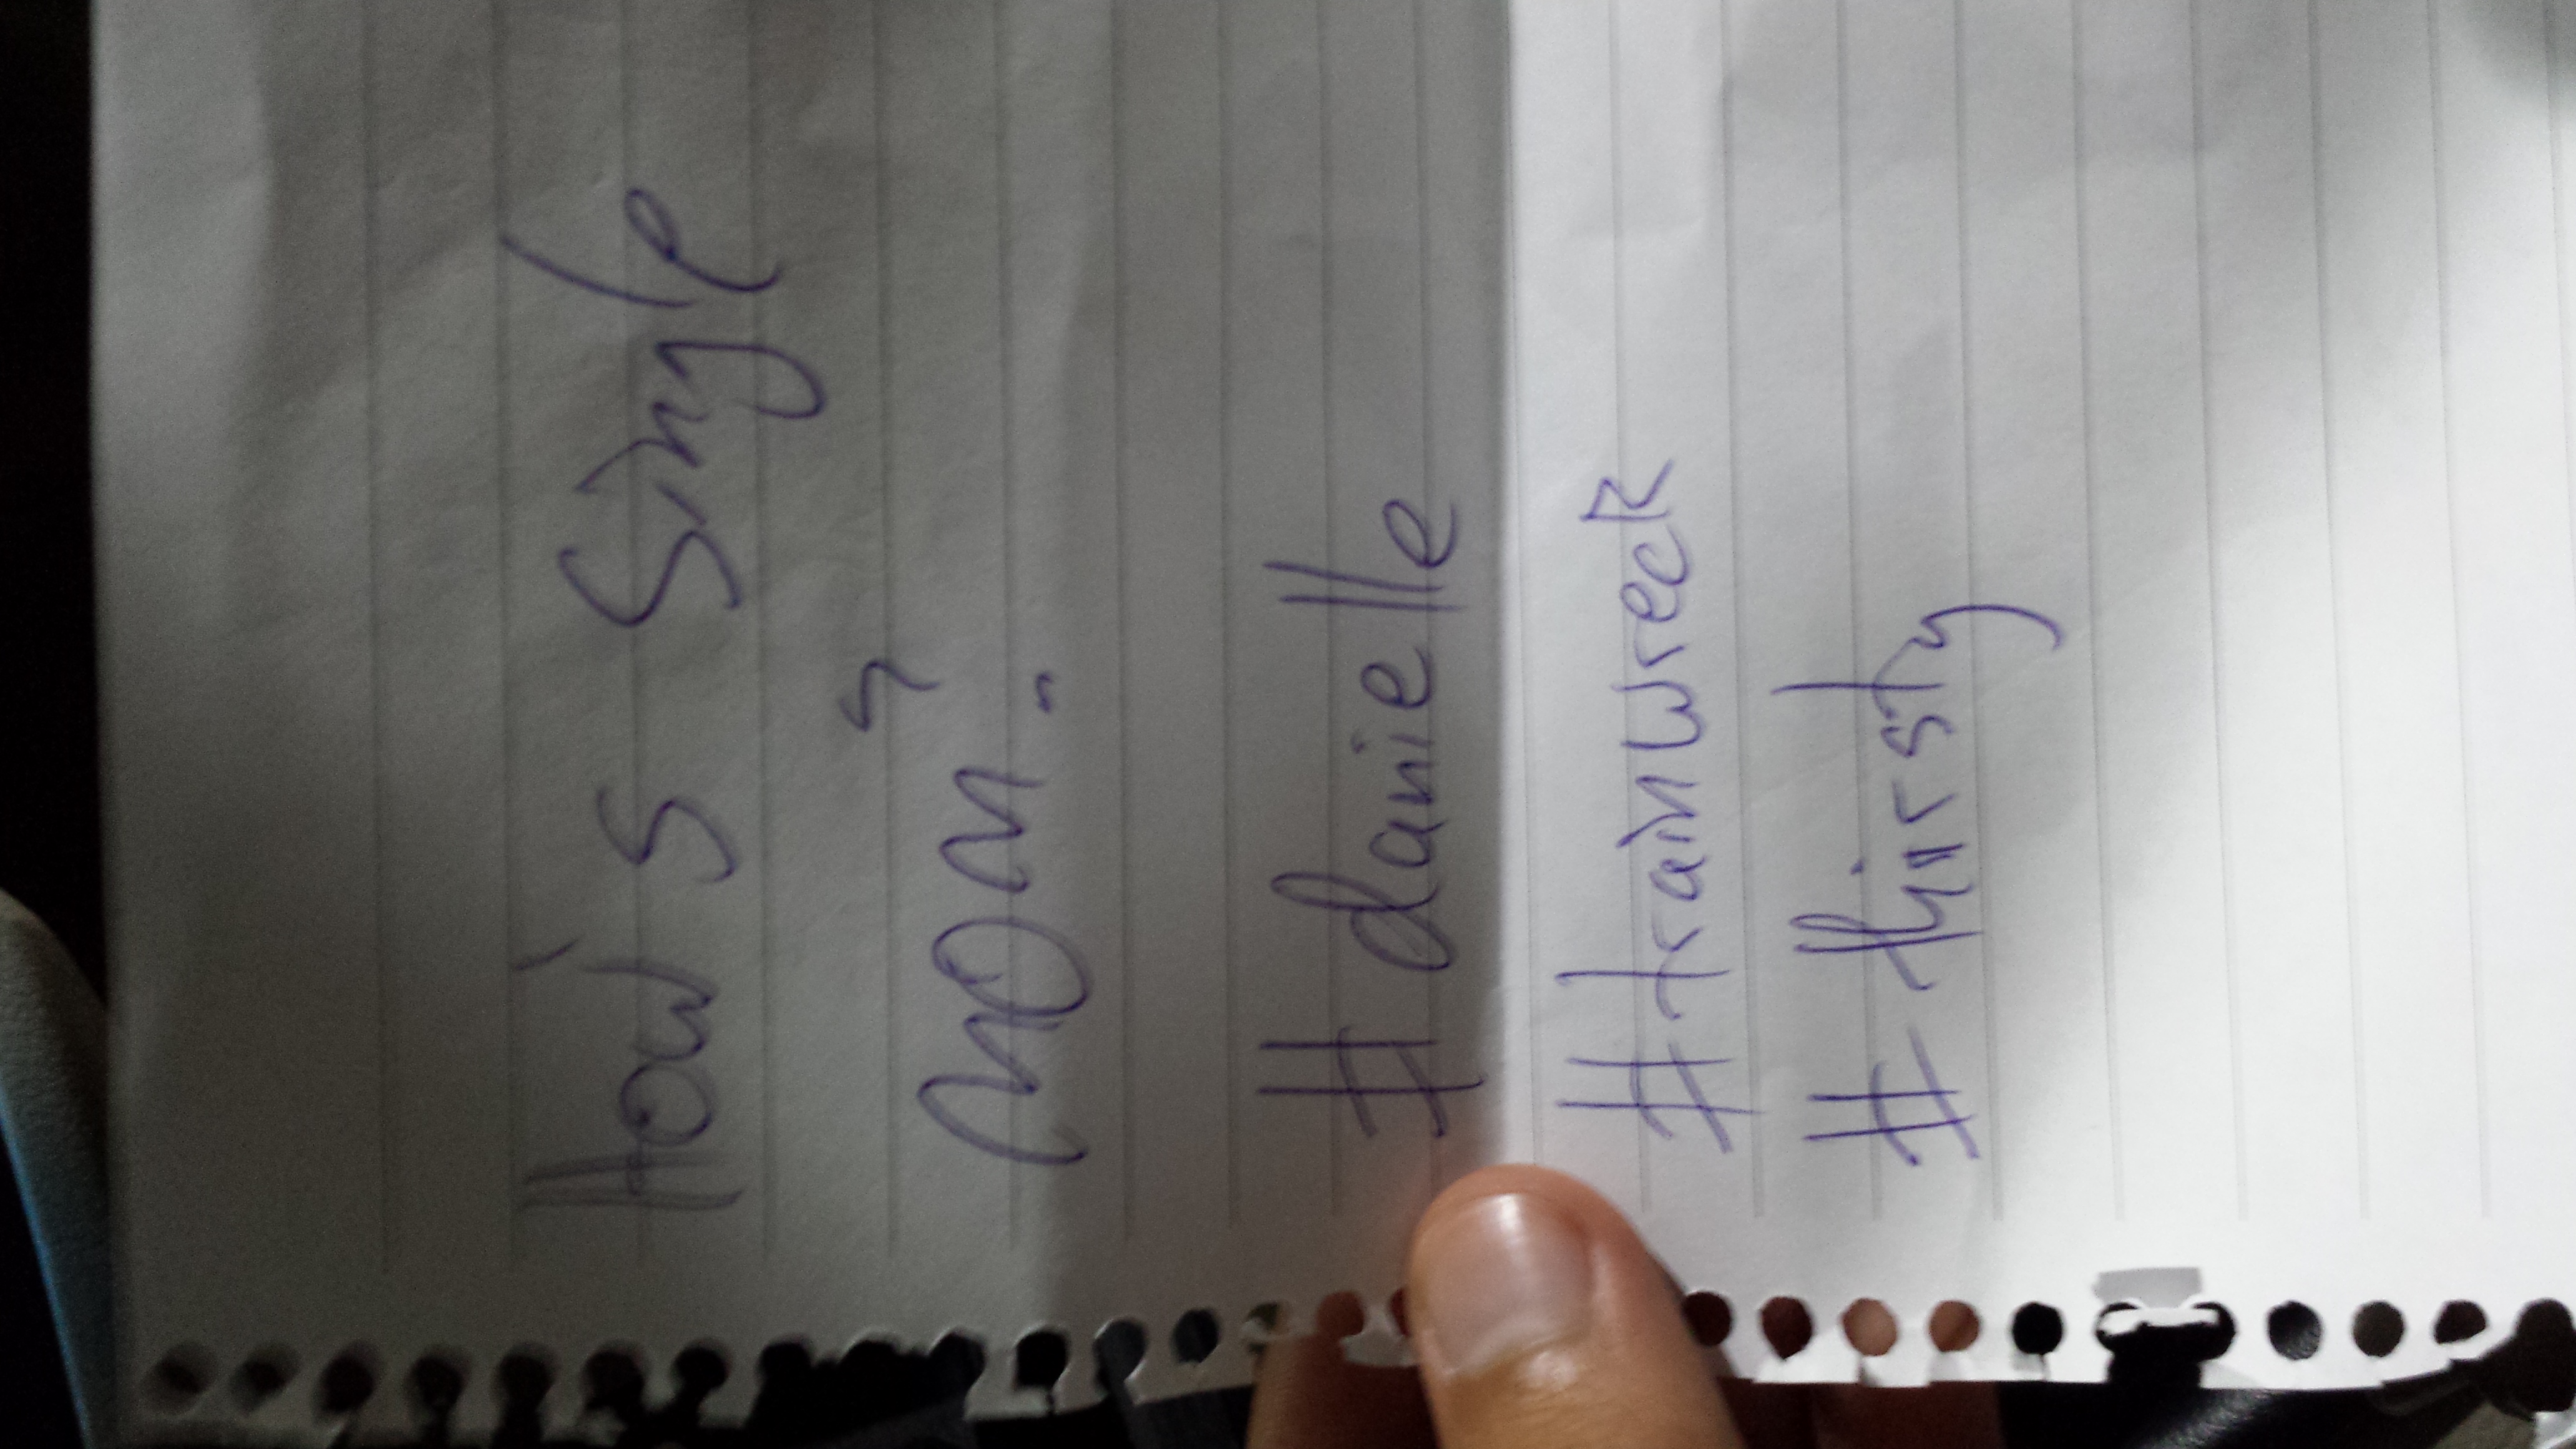 How's Single
mom?
#danielle
#trainwreck
#thirsty